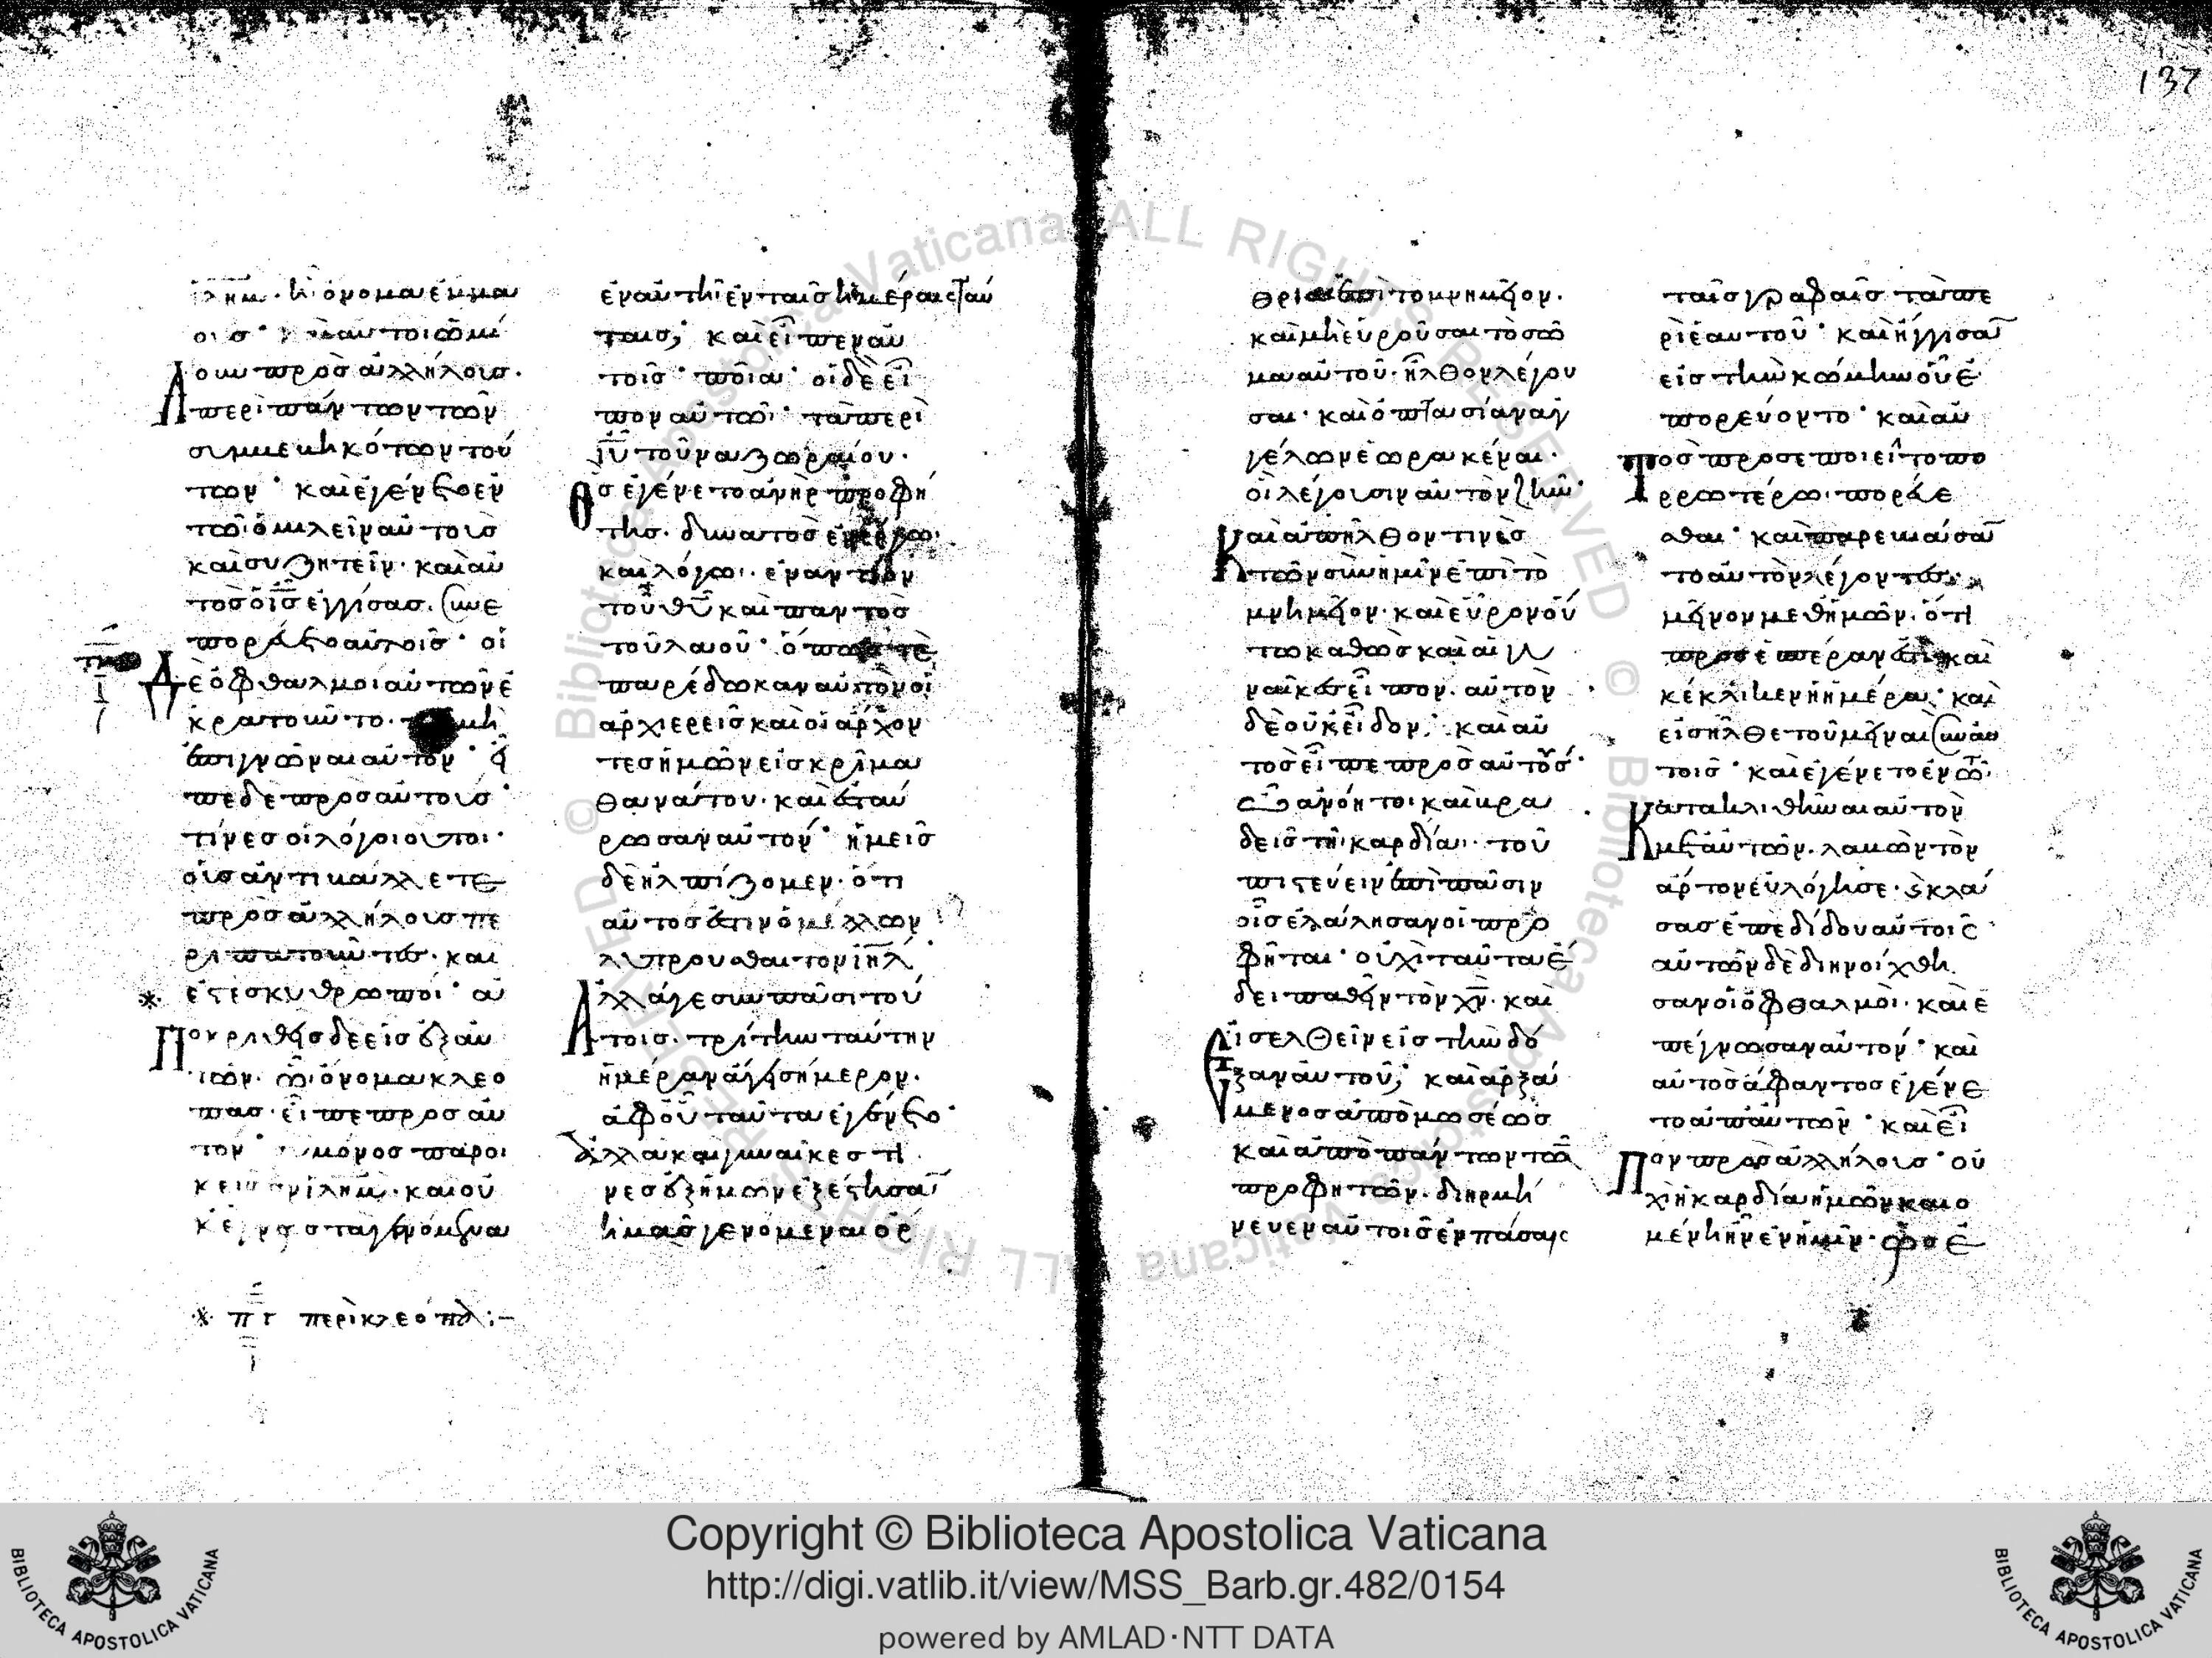 137
ιλημ. ἡ ὄνομα ἐμμα
ουσ· κ αυτοι ὡμί
λουν προσ ἀλλήλουσ.
περὶ πάντων τῶν
συμβεβηκότων τού
των· καὶ ἐγένετο ἐν
τῶ ὁμιλεῖν αὐτουσ
καὶ συζητεῖν· καὶ αὐ
τοσ ὁ ισ ἐγγίσασ. συνε
πορεύετο αὐτοῖσ· οἱ
δὲ ὀφθαλμοὶ αὐτῶν ἐ
κρατοῦντο. μὴ
ἐπιγνῶναι αὐτόν· εἶ
πε δε προσ αὐτουσ·
τίνεσ οἱ λόγοι οὗτοι·
οὓσ ἀντιβάλλετε
προσ ἀλλήλουσ πε
ριπατοῦντεσ. και
* ἐστὲ σκυθρωποί· ἀ
ποκριθεὶσ δε εἷσ ἐξ αὐ
τῶν. ὧ ὄνομα κλεο
πασ. εἶπε προσ αὐ
τον· μόνοσ παροι
κεισ ιλημ. καὶ οὐ
κ ἔγνωσ τὰ γενόμενα
* πγ περὶ κλεόπα:–
ἐν αὐτῆ ἐν ταῖσ ἡμέραισ ταύ
ταισ; καὶ εἶπεν αὐ
τοῖσ· ποῖα· οἱ δὲ εἶ
πον αὐτῶ· τὰ περὶ
ιυ τοῦ ναζωραίου.
ὃσ ἐγένετο ἀνὴρ προφή
τησ. δυνατὸσ ἐν ἔργω.
καὶ λόγω. ἐναντίον
τοῦ θυ καὶ παντὸσ
τοῦ λαοῦ· ὅπωσ τε
παρέδωκαν αὐτὸν οἱ
ἀρχιερεῖσ καὶ οἱ ἄρχον
τεσ ἡμῶν εἰσ κρίμα
θανάτου. καὶ ἐσταύ
ρωσαν αὐτόν· ἡμεῖσ
δὲ ἠλπίζομεν. ὅτι
αὐτόσ ἐστιν ὁ μέλλων
λυτροῦσθαι τον ιηλ·
ἀλλά γε συν πᾶσι τού
τοισ. τρίτην ταύτην
ἡμέραν ἄγει σήμερον.
ἀφοῦ ταῦτα ἐγένετο·
ἀλλὰ καὶ γυναῖκεσ τι
νεσ ἐξ ἡμῶν ἐξέστησαν
ἡμᾶσ γενόμεναι ὄρ
θριαι ἐπὶ το μνημεῖον.
καὶ μὴ εὑροῦσαι τὸ σῶ
μα αὐτοῦ. ἦλθον λέγου
σαι. καὶ ὀπτασίαν ἀγ
γέλων ἑωρακέναι.
οἳ λέγουσιν αὐτὸν ζῆν·
καὶ ἀπῆλθόν τινὲσ
τῶν σὺν ἡμῖν ἐπὶ τὸ
μνημεῖον. καὶ εὗρον οὕ
τω καθὼσ καὶ αἱ γυ
ναῖκεσ εἶπον. αὐτὸν
δὲ οὐκ εἶδον. καὶ αὐ
τοσ εἶπε προσ αὐτούσ·
ὦ ἀνόητοι καὶ βρα
δεῖσ τῆ καρδία. τοῦ
πιστεύειν ἐπὶ πᾶσιν
οἷσ ἐλάλησαν οἱ προ
φῆται· οὐχὶ ταῦτα ἔ
δει παθεῖν τὸν χν. καὶ
εἰσελθεῖν εἰσ τὴν δό
ξαν αὐτοῦ; καὶ ἀρξά
μενοσ ἀπὸ μωσέωσ
καὶ ἀπὸ πάντων τῶν
προφητῶν. διηρμή
νευεν αὐτοῖσ ἐν πάσαισ
ταῖσ γραφαῖσ τὰ πε
ρὶ ἑαυτοῦ· καὶ ἤγγισαν
εἰσ τὴν κώμην οὗ ἐ
πορεύοντο· καὶ αὐ
τὸσ προσεποιεῖτο πο
ρρωτέρω. πορεύε
σθαι· καὶ παρεβιάσαν
το αὐτὸν λέγοντεσ.
μεῖνον μεθ' ἡμῶν. ὅτι
προσ ἑσπέραν ἐστὶ καὶ
κέκλικεν ἡ ἡμέρα· καὶ
εἰσῆλθε τοῦ μεῖναι σὺν αὐ
τοῖσ· καὶ ἐγένετο ἐν τῶ
κατακλιθῆναι αὐτὸν
μετ' αὐτῶν. λαβὼν τὸν
ἄρτον εὐλόγησε. καὶ κλά
σασ ἐπεδίδου αὐτοῖσ·
αὐτῶν δὲ διηνοίχθη
σαν οἱ ὀφθαλμοὶ. καὶ ἐ
πέγνωσαν αὐτόν· καὶ
αὐτοσ ἄφαντοσ ἐγένε
το ἀπ' αὐτῶν· καὶ εἶ
πον προσ ἀλλήλουσ· οὐ
χὶ ἡ καρδία ἡμῶν καιο
μένη ἦν ἐν ἡμῖν. ὡσ ἐ
Copyright © Biblioteca Apostolica Vaticana
http://digi.vatlib.it/view/MSS_Barb.gr.482/0154
powered by AMLAD·NTT DATA
BIBLIOTECA APOSTOLICA VATICANA
BIBLIOTECA APOSTOLICA VATICANA
© Biblioteca Apostolica Vaticana ALL RIGHTS RESERVED